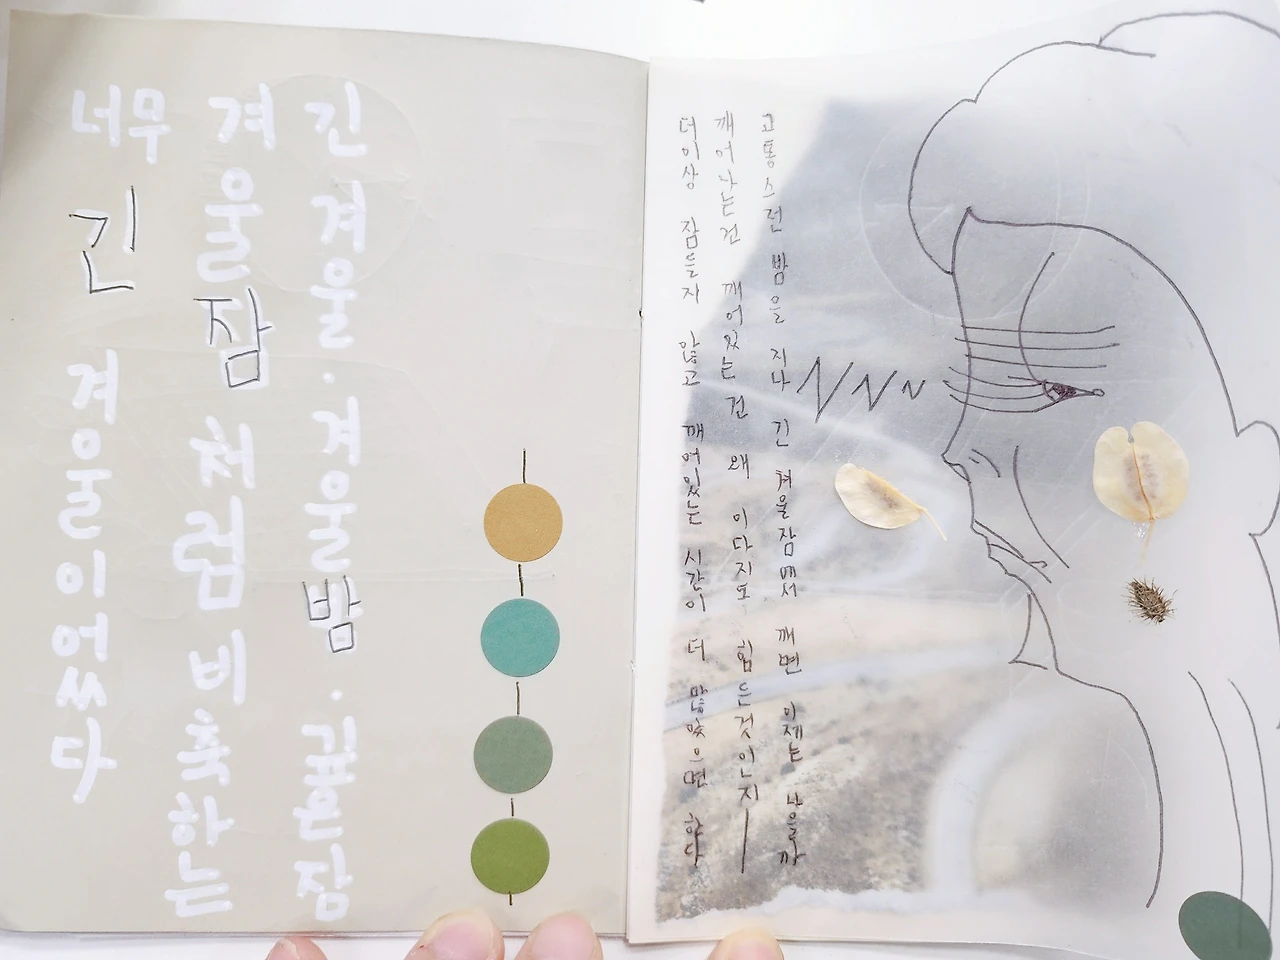 긴 겨울. 겨울밤. 깊은잠
겨울잠처럼 비축하는
너무 긴 겨울이었다
고통스런 밤을 지나 긴 겨울잠에서 깨면 이제는 나을까
깨어나는건 깨어있는 건 왜 이다지도 힘든것인지
더이상 잠들지 않고 깨어있는 시간이 더 많았으면 한다